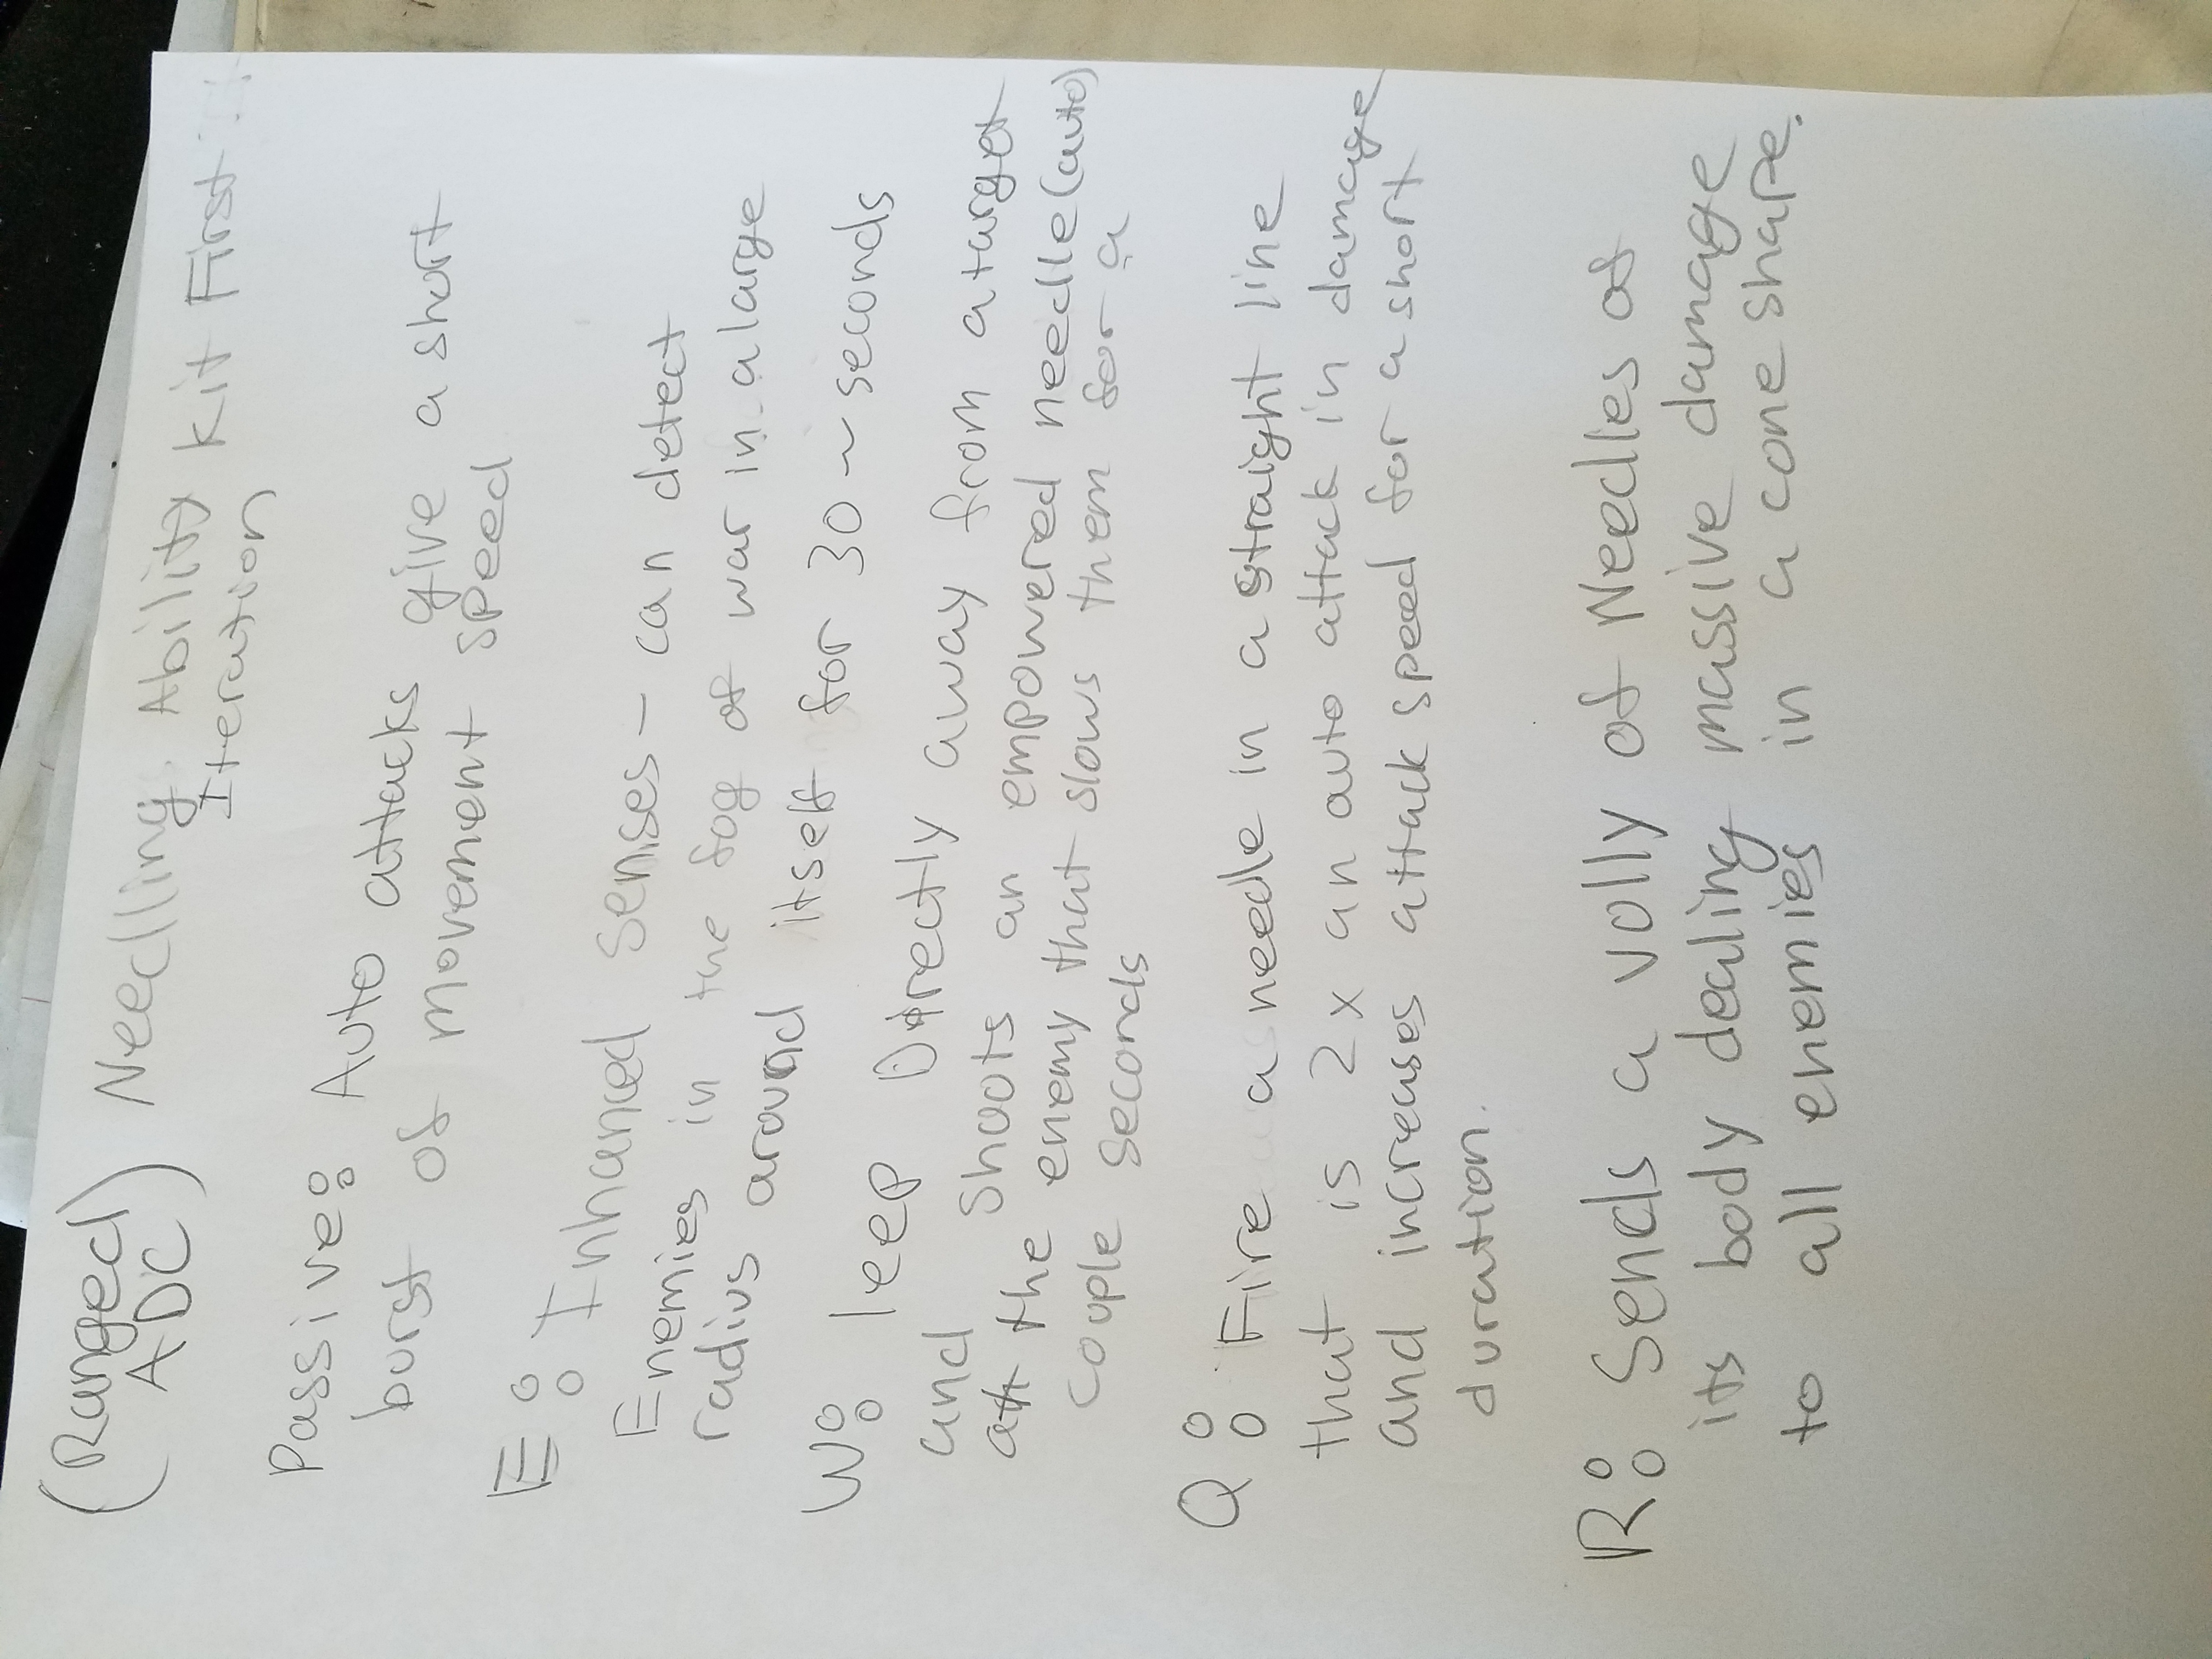 (Ranged ADC) Needlling Ability Kit First
Iteration
Passive: Auto attacks give a short
burst of movement speed
E: Inhanced senses - can detect
Enemies in the fog of war in a large
radius around itself for 30 ~ seconds
W: leep Directly away from a target
and shoots an empowered needle (auto)
at the enemy that slows them for a
couple seconds
Q: Fire a needle in a straight line
that is 2x an auto attack in damage
and increases attack speed for a short
duration.
R: Sends a volly of Needles of
its body dealing massive damage
to all enemies in a cone shape.